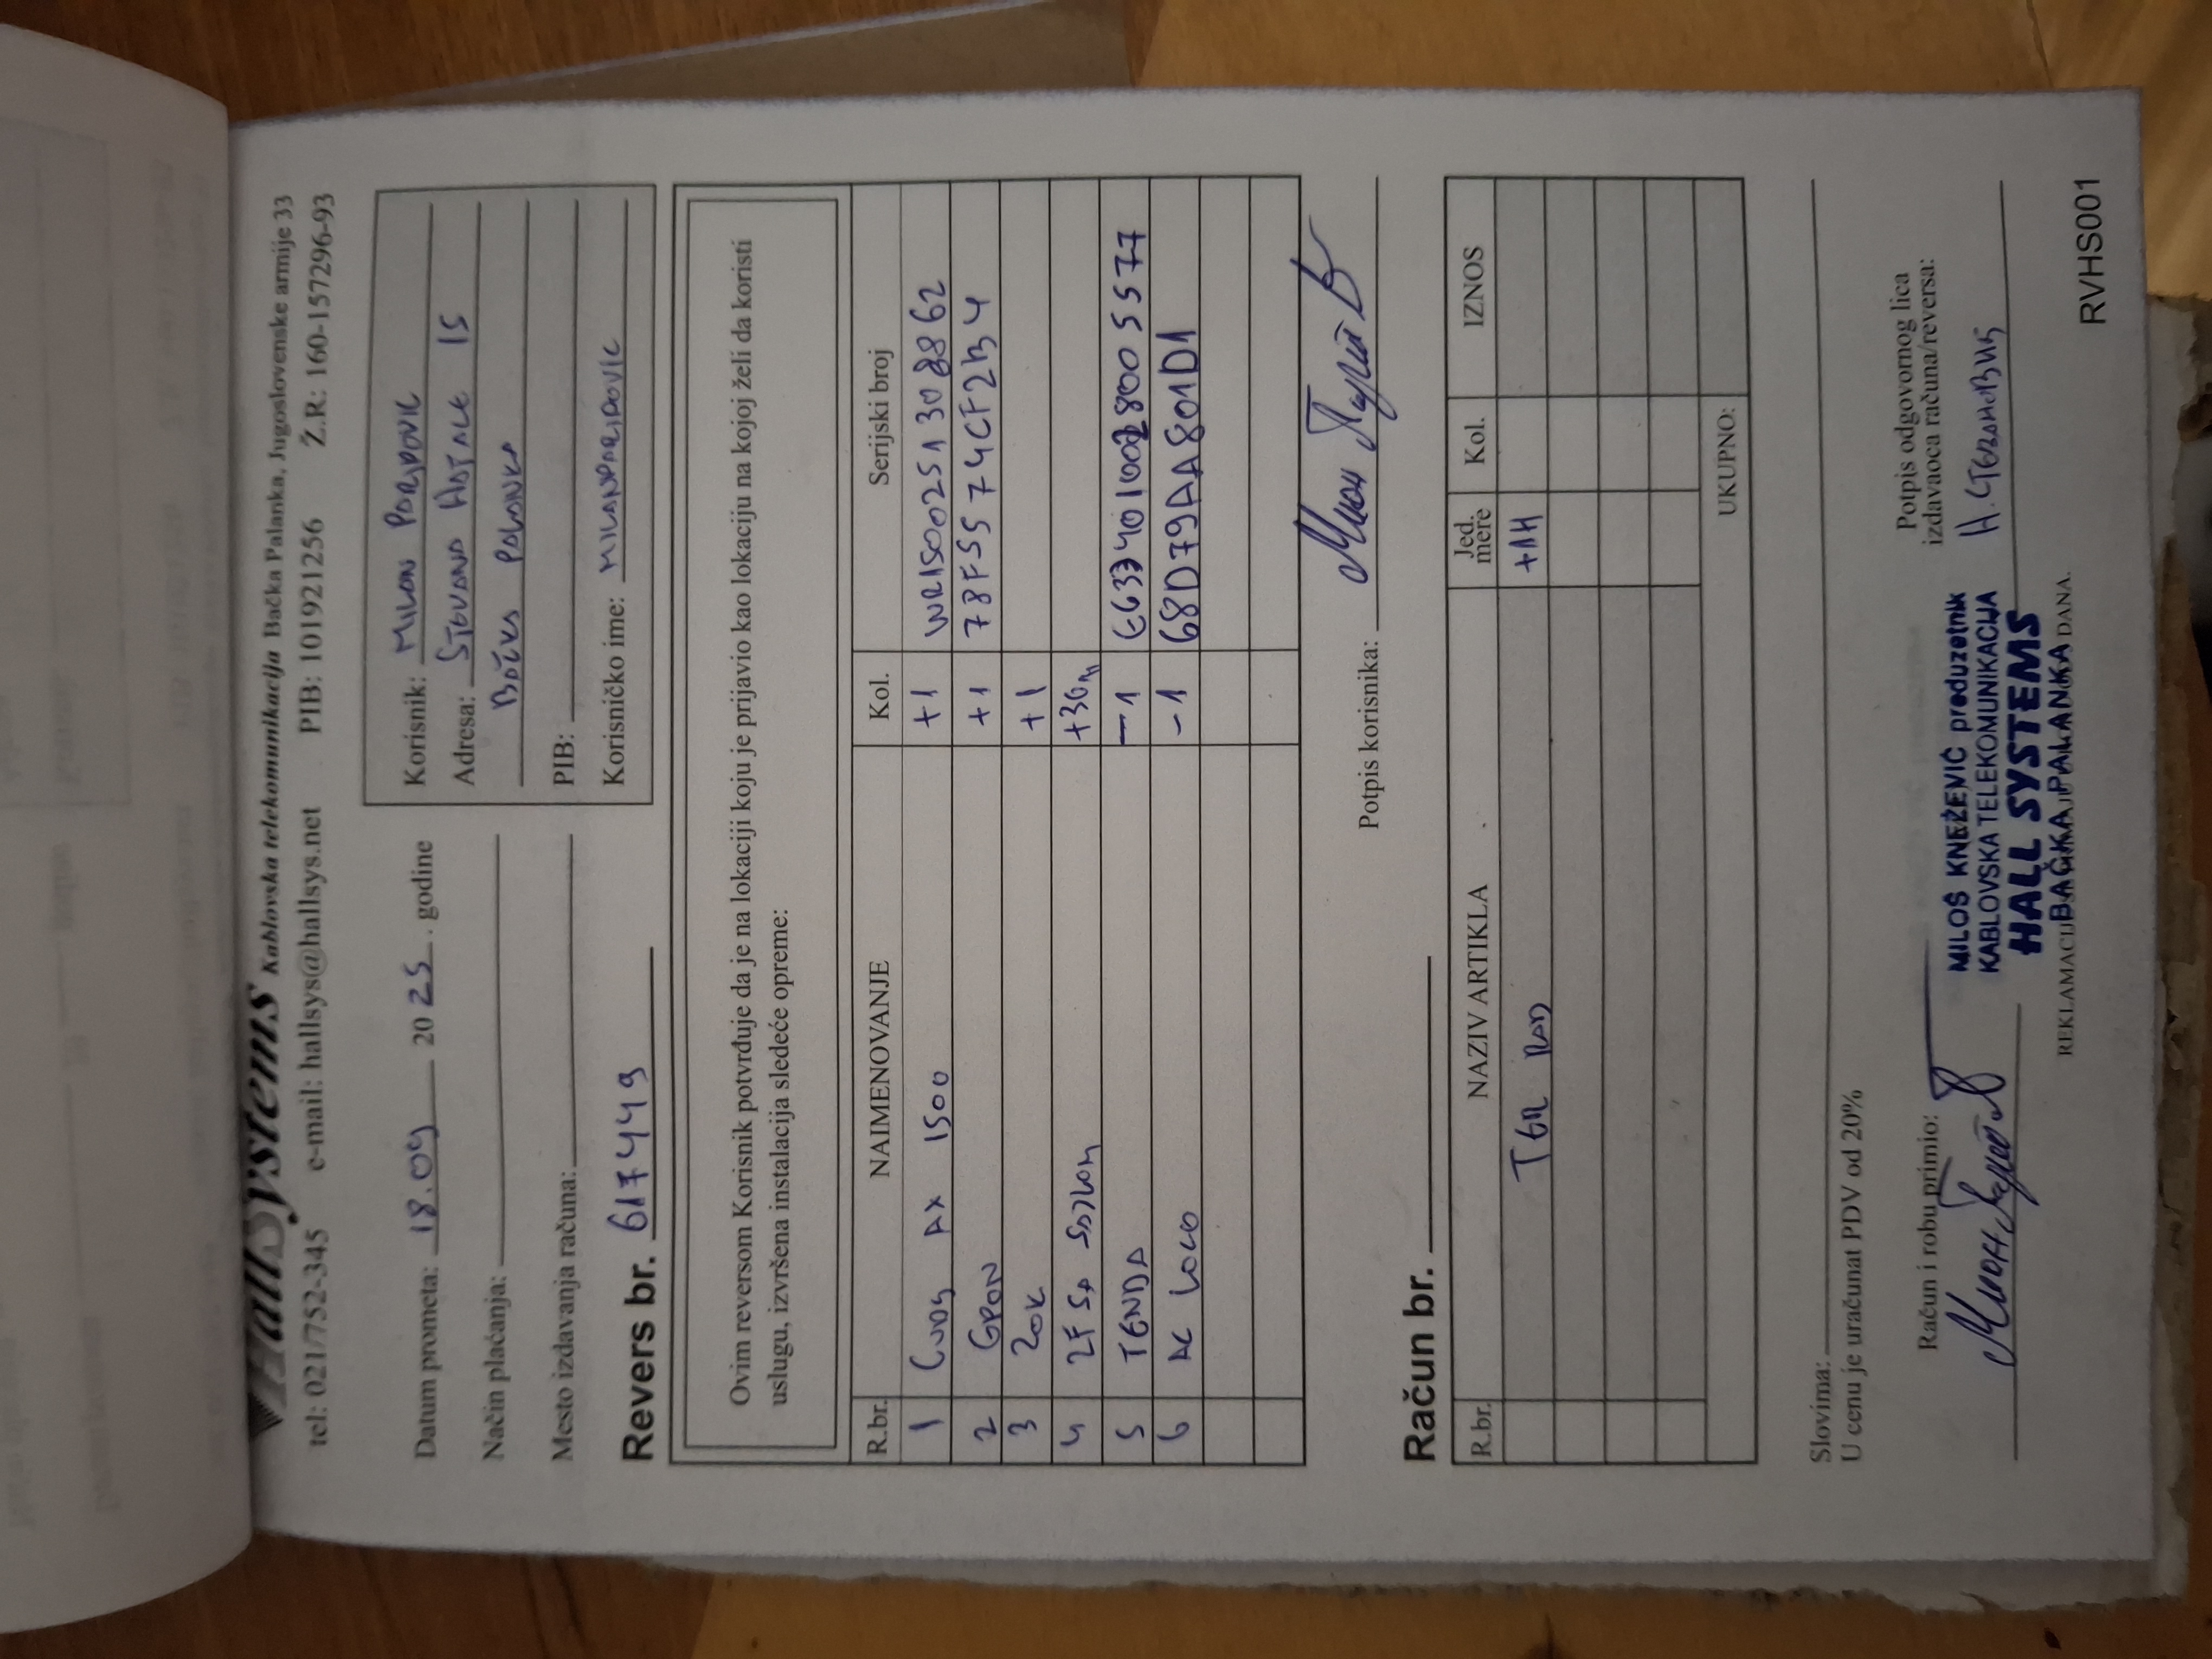 HallSystems Kablovska telekomunikacija Bačka Palanka, Jugoslovenske armije 33
tel: 021/752-345 e-mail: hallsys@hallsys.net PIB: 101921256 Ž.R.: 160-157296-93
Datum prometa: 18.09 2025. godine
Način plaćanja:
Mesto izdavanja računa:
Korisnik: MILAN PARIPOVIC
Adresa: STEVANA HRISTIĆA 15
BAČKA PALANKA
PIB:
Korisničko ime: MILANPARIPOVIC
Revers br. 617449
Ovim reversom Korisnik potvrđuje da je na lokaciji koju je prijavio kao lokaciju na kojoj želi da koristi
uslugu, izvršena instalacija sledeće opreme:
R.br. NAIMENOVANJE Kol. Serijski broj
1 CUDY AX 1500 +1 WR1500251308862
2 GPON +1 78F5574CF2B4
3 ZOK +1
4 2F SA +30m
5 TENDA -1 E6334010028005577
6 AC LOCO -1 68D79AA801D1
Potpis korisnika:
Račun br.
R.br. NAZIV ARTIKLA Jed. mere Kol. IZNOS
TER RAD +1H
UKUPNO:
Slovima:
U cenu je uračunat PDV od 20%
Račun i robu primio:
Potpis odgovornog lica
izdavaoca računa/reversa:
MILOŠ KNEŽEVIĆ preduzetnik
KABLOVSKA TELEKOMUNIKACIJA
HALL SYSTEMS
BAČKA PALANKA
Н. Стевановић
RVHS001